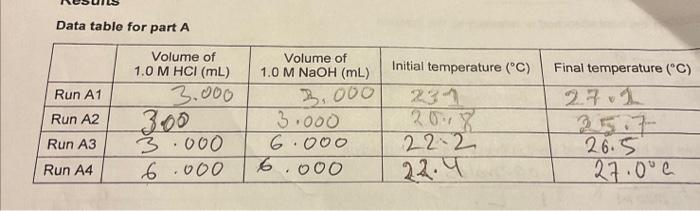 Results
Data table for part A
Volume of 1.0 M HCl (mL) Volume of 1.0 M NaOH (mL) Initial temperature (°C) Final temperature (°C)
Run A1 3.000 3.000 231 27.1
Run A2 300 3.000 20.8 25.7
Run A3 3.000 6.000 22.2 26.5
Run A4 6.000 6.000 22.4 27.0°C